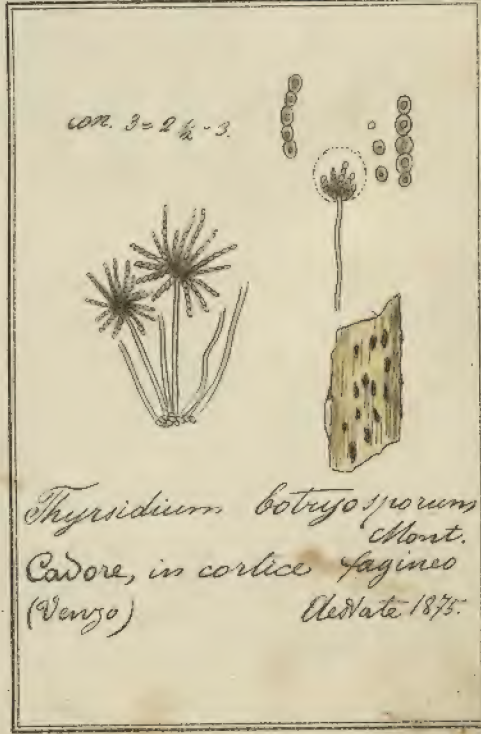 con. 3 = 2 ½ - 3.
Thyrsidium botryosporum
Mont.
Cadore, in cortice fagineo
(Venzo) Aestate 1875.